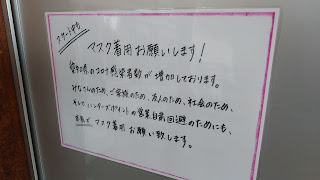 スタート中も
マスク着用お願いします!
愛知県のコロナ感染者数が増加しております。
みなさんのため、ご家族のため、友人のため、社会のため、
そして、ハンターズポイントの営業自粛回避のためにも、
マスク着用お願い致します。